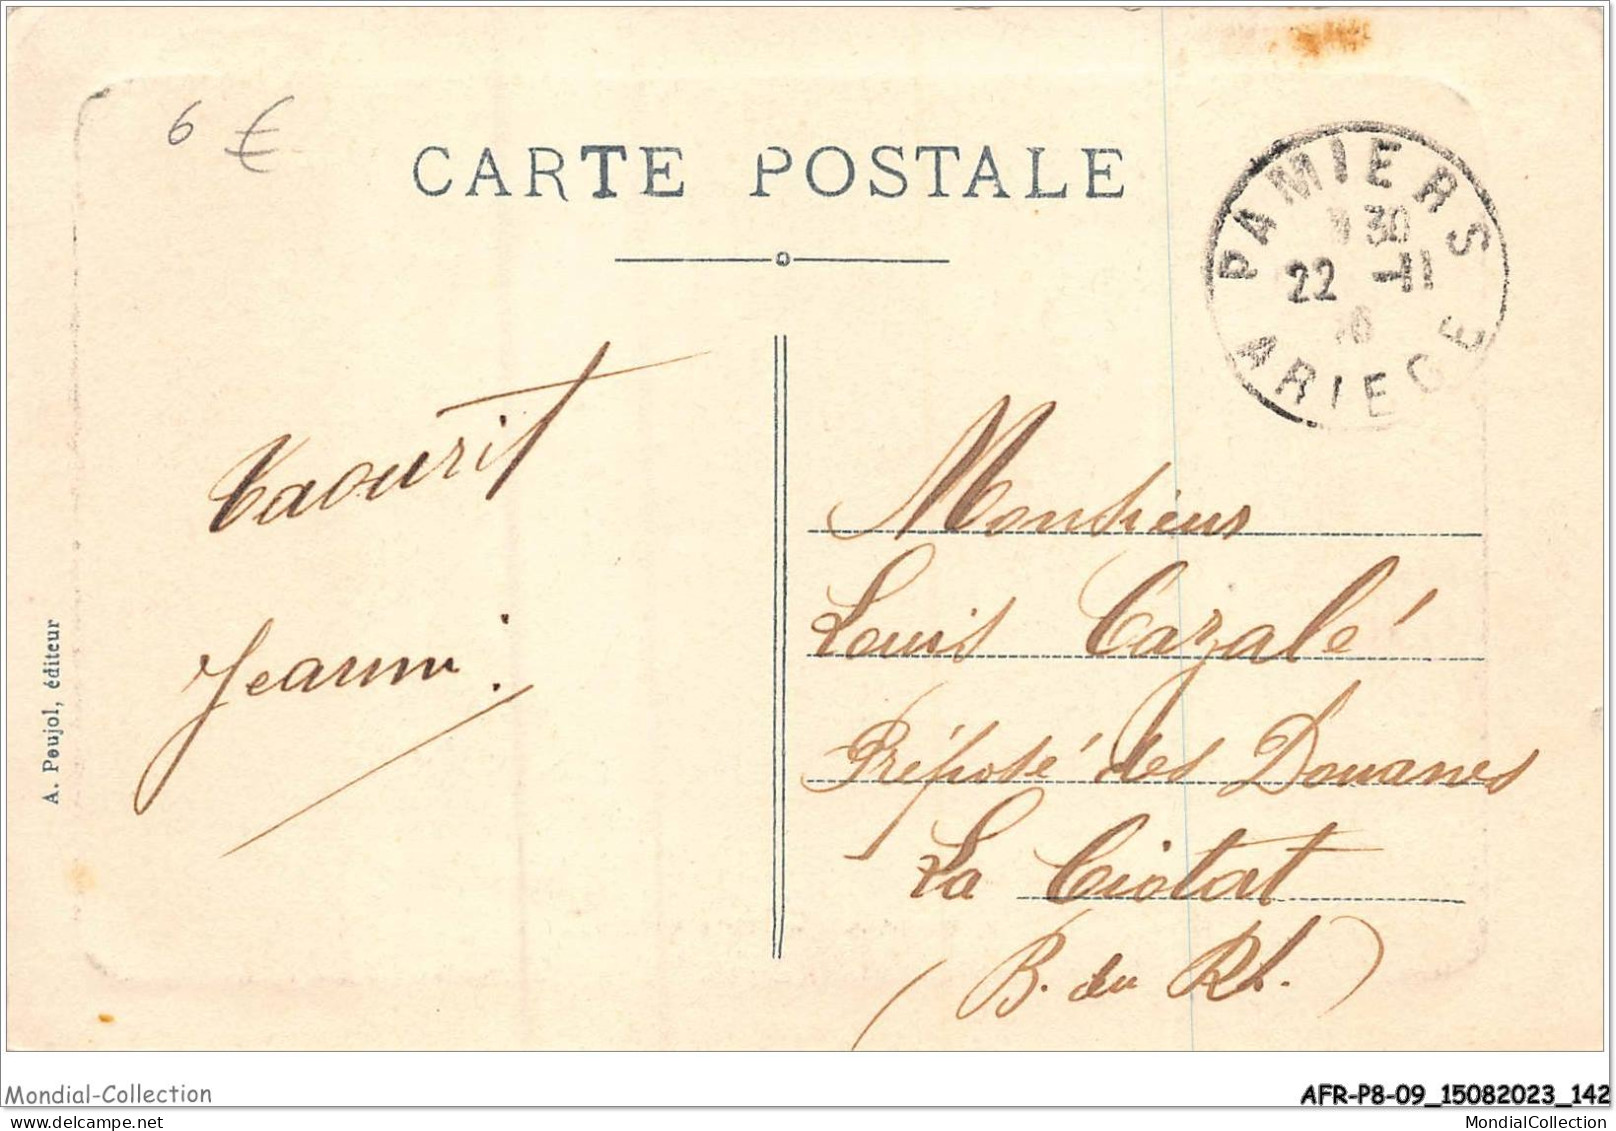 6 €
CARTE POSTALE
PAMIERS
30
22 11
ARIEGE
Taourit
Jeanni
Monsieur
Louis Cazalé
Préposé des Douanes
La Ciotat
(B. du Rh.)
A. Poujol, éditeur
Mondial-Collection
AFR-P8-09_15082023_142
www.delcampe.net
MondialCollection